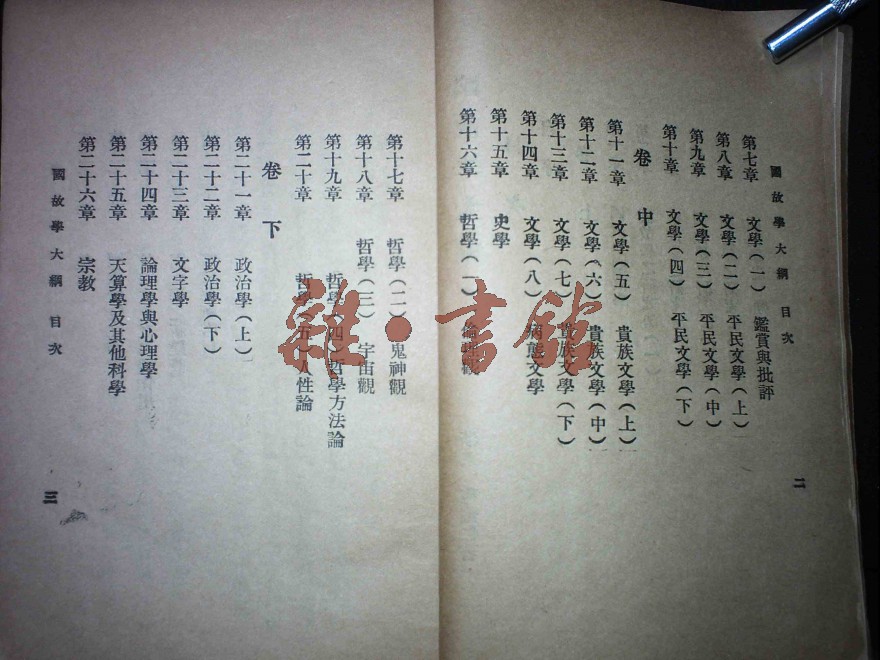 國故學大綱 目次
第七章 文學(一) 鑑賞與批評
第八章 文學(二) 平民文學(上)
第九章 文學(三) 平民文學(中)
第十章 文學(四) 平民文學(下)
卷中
第十一章 文學(五) 貴族文學(上)
第十二章 文學(六) 貴族文學(中)
第十三章 文學(七) 貴族文學(下)
第十四章 文學(八) 病態文學
第十五章 史學
第十六章 哲學(一) 倫理觀
二
第十七章 哲學(二) 鬼神觀
第十八章 哲學(三) 宇宙觀
第十九章 哲學(四) 哲學方法論
第二十章 哲學(五) 人性論
卷下
第二十一章 政治學(上)
第二十二章 政治學(下)
第二十三章 文字學
第二十四章 論理學與心理學
第二十五章 天算學及其他科學
第二十六章 宗教
國故學大綱 目次
三
書館